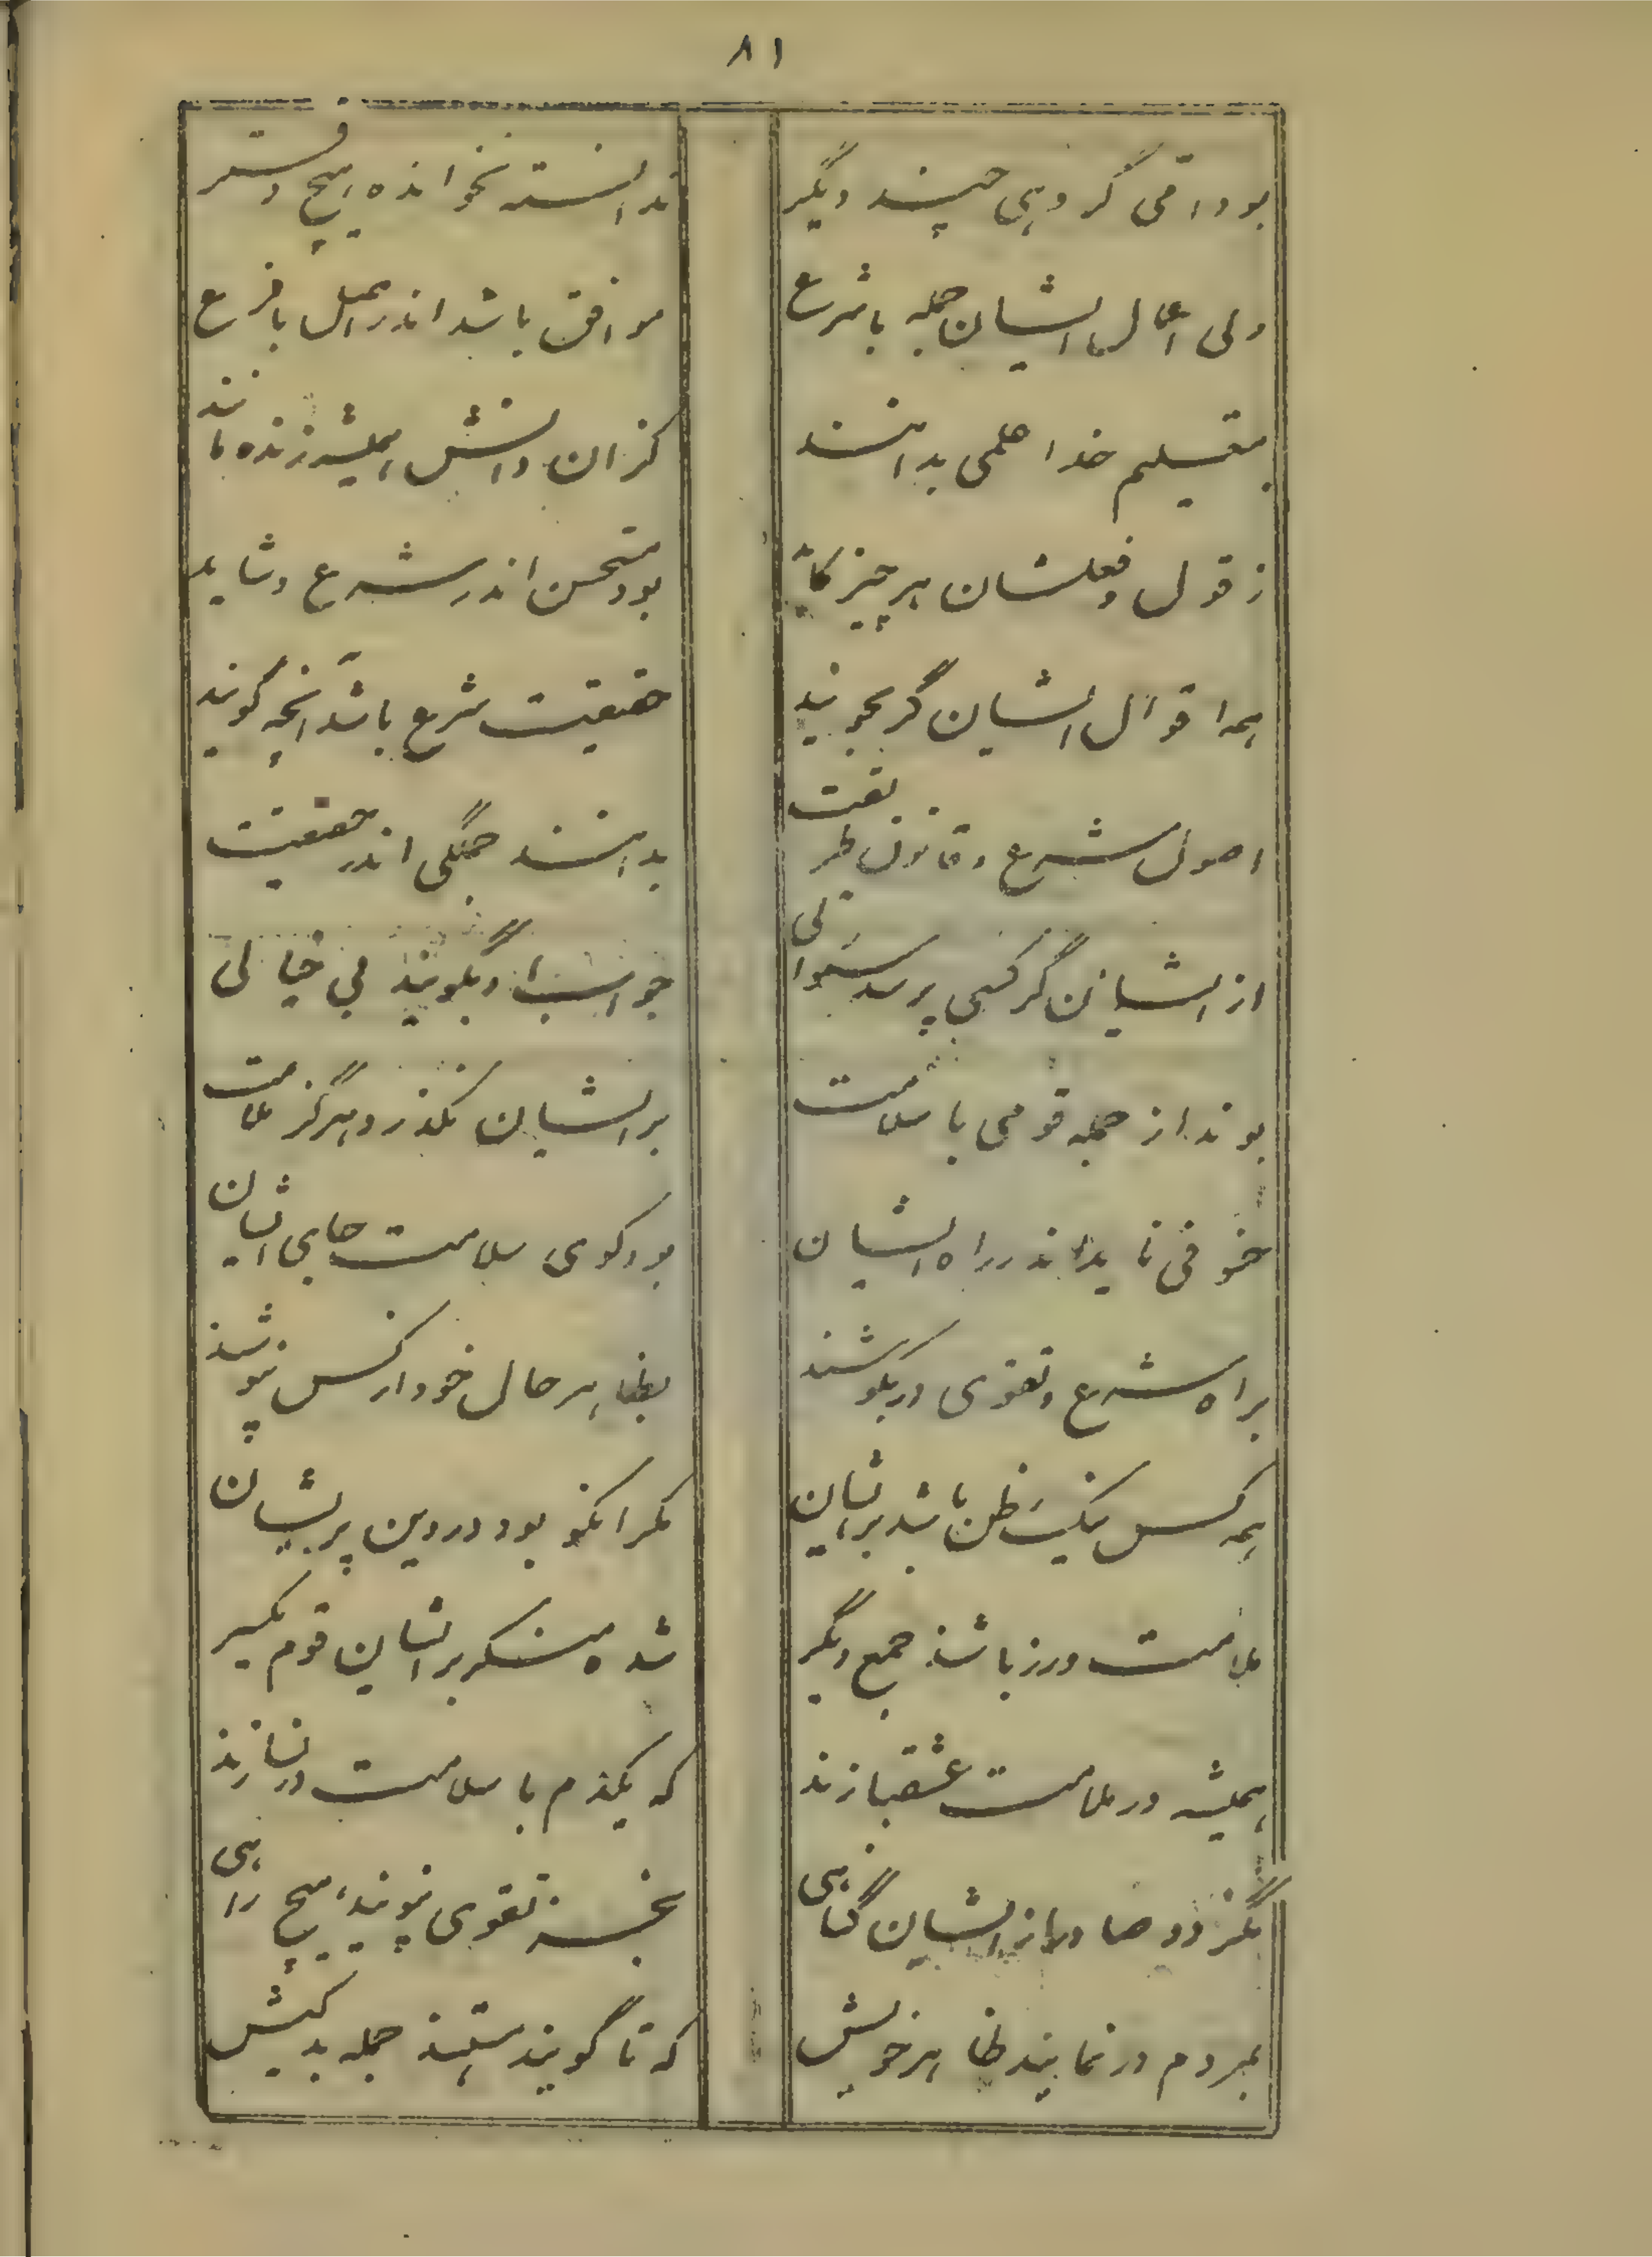 ۸۱
بود امی گروهی چند دیگر
ندانسته نخوانده هیچ دفتر
ولی اعمال ایشان جمله با شرع
موافق باشد اندر اصل با فرع
بتعلیم خدا علمی بدانند
کزان دانش همیشه زنده مانند
ز قول و فعلشان هر چیز کاید
بود مستحسن اندر شرع و شاید
همه اقوال ایشان گر بجویند
حقیقت شرع باشد آنچه گویند
اصول شرع و قانون طریقت
بدانند جملگی اندر حقیقت
از ایشان گر کسی پرسد سئوالی
جوابش را بگویند بی خیالی
بوند از جمله قومی با سلامت
بر ایشان نگذرد هرگز ملامت
خوفی ناید اندر راه ایشان
بود کوی سلامت جای ایشان
براه شرع و تقوی در بکوشند
بظاهر حال خود از کس نپوشند
همه کس نیک ظن باشد بر ایشان
مگر انکو بود در دین پریشان
ملامت ورز باشند جمع دیگر
شده منکر بر ایشان قوم یکسر
همیشه در ملامت عشقبازند
که یکدم با سلامت در نسازند
نگردد صادر از ایشان گناهی
بجز تقوی نپویند هیچ راهی
بمردم در نمایند ظاهر خویش
که تا گویند هستند جمله بد کیش